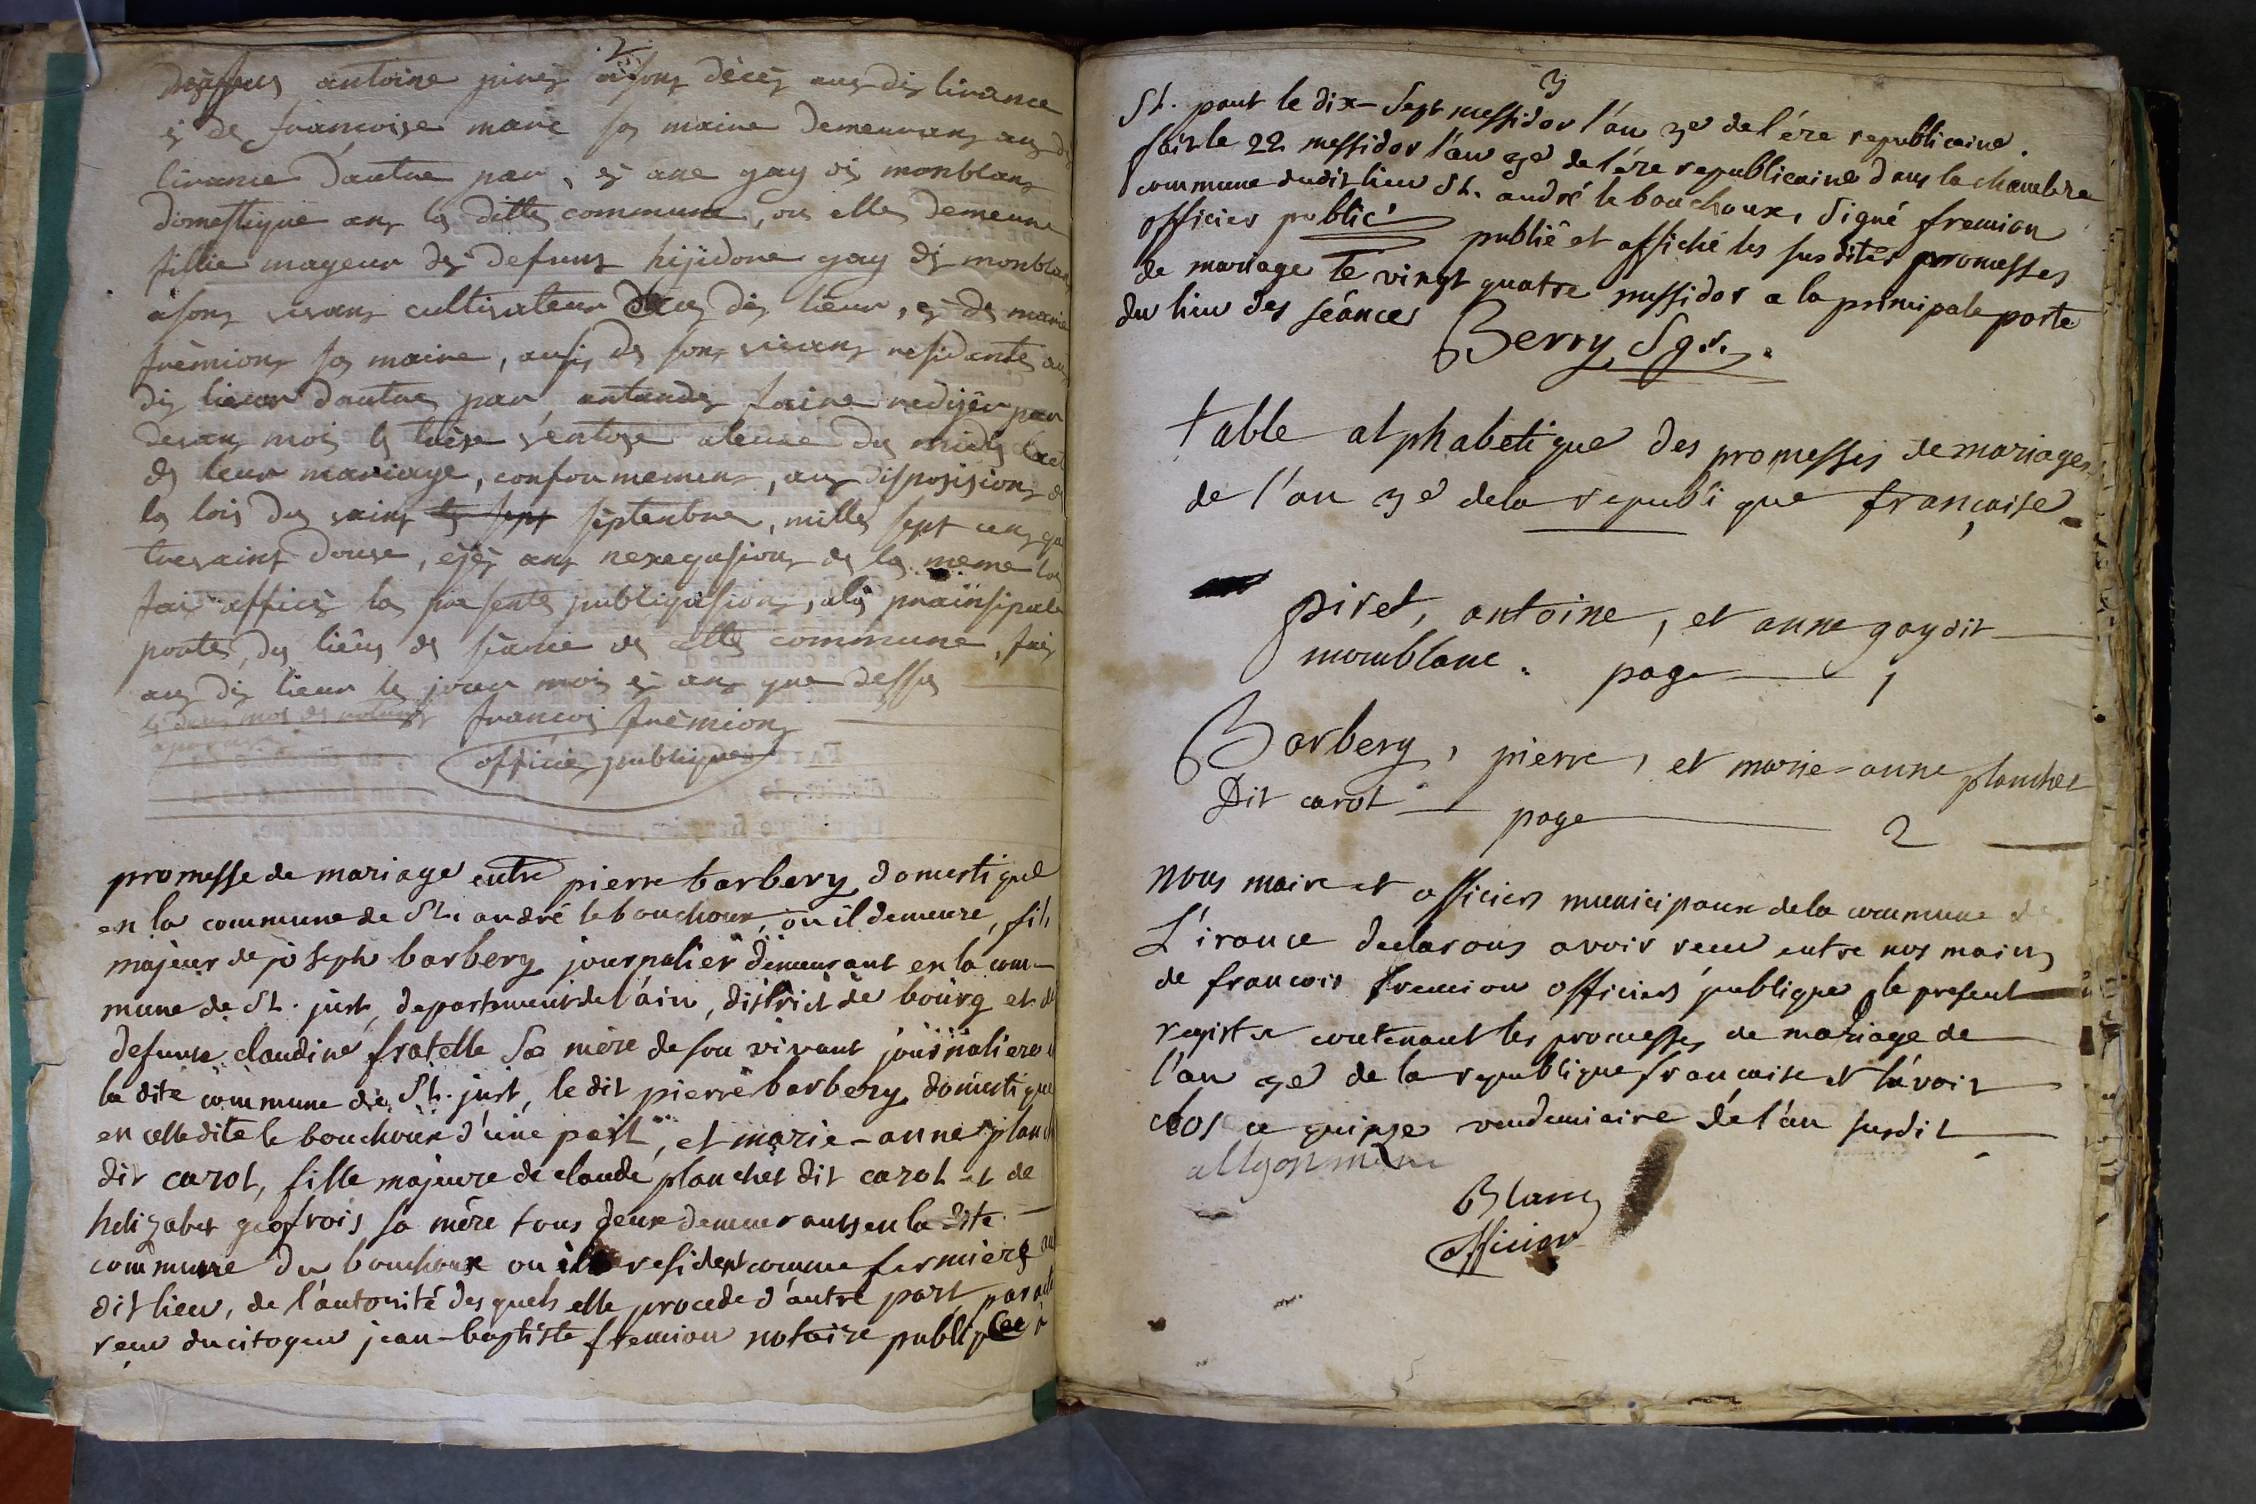 2
antoine piret a son décès au dis lirance
e de francoise marie sa maire demeurans au
lirance d'autre par, e ane gay di monblans
domestique ans la ditte commune, ou elle demeure
fillie mageur de defuns hijidore gay di monblan
a sons vivans cultivateur aus dis lieur, e de marie
frèmions sa maire, ausi de sons vivans residante au
dis lieur d'autre par, antandes faire redijer par
devans mois le ventose aleure du midis lac
de leur mariage, conformemens, aus disposisions de
la lois du vains septenbre, mille sept cens qua
trevains douse, ejès ans nexequsions de la meme loi
jai affice la presente publiquasions, ala prainsipale
porte du lieus de séance de celle commune, fai
aus dis lieur le jour mois e ans que dessus
françois frèmions
officie publique
promesse de mariage entre pierre barbery, domestique
en la commune de St. andré le bouchoux, ou il demeure, fils
majeur de joseph barbery journalier demeurant en la com-
mune de St. just, departement de l'ain, district de bourg et de
defunte claudine fratelle sa mère de son vivant journaliere
la dite commune de St. just, le dit pierre barbery domestique
en celle dite le bouchoux d'une part, et marie-anne planch
dit carot, fille majeure de claude planchet dit carot et de
helizabet geofrois sa mère tous deux demeurants en la dite
commune du bouchoux ou ils resident comme fermiers au
dit lieu, de l'autorité des quels elle procede d'autre part, par acte
reçu du citoyen jean-baptiste fremion notaire public à
3
St. paul le dix-sept messidor l'an 3e de l'ère republicaine.
fait le 22 messidor l'an 3e de l'ère republicaine dans la chambre
commune dudit lieu St. andré le bouchoux, signé fremion
officier public publié et affiché les susdites promesses
de mariage le vingt quatre messidor a la principale porte
du lieu des séances
Berry Sgr.
table alphabetique des promesses de mariages
de l'an 3e de la republique française
piret, antoine, et anne gay dit
momblanc. page 1
Barbery, pierre, et marie-anne planchet
Dit carot page 2
nous maire et officiers municipaux de la commune de
L'irance declarons avoir recu entre nos mains
de francois fremion officiers publique le present
registre contenant les promesses de mariage de
l'an 3e de la republique francaise et l'avoir
clos ce quinze vendemiaire de l'an susdit
Blanc
officier